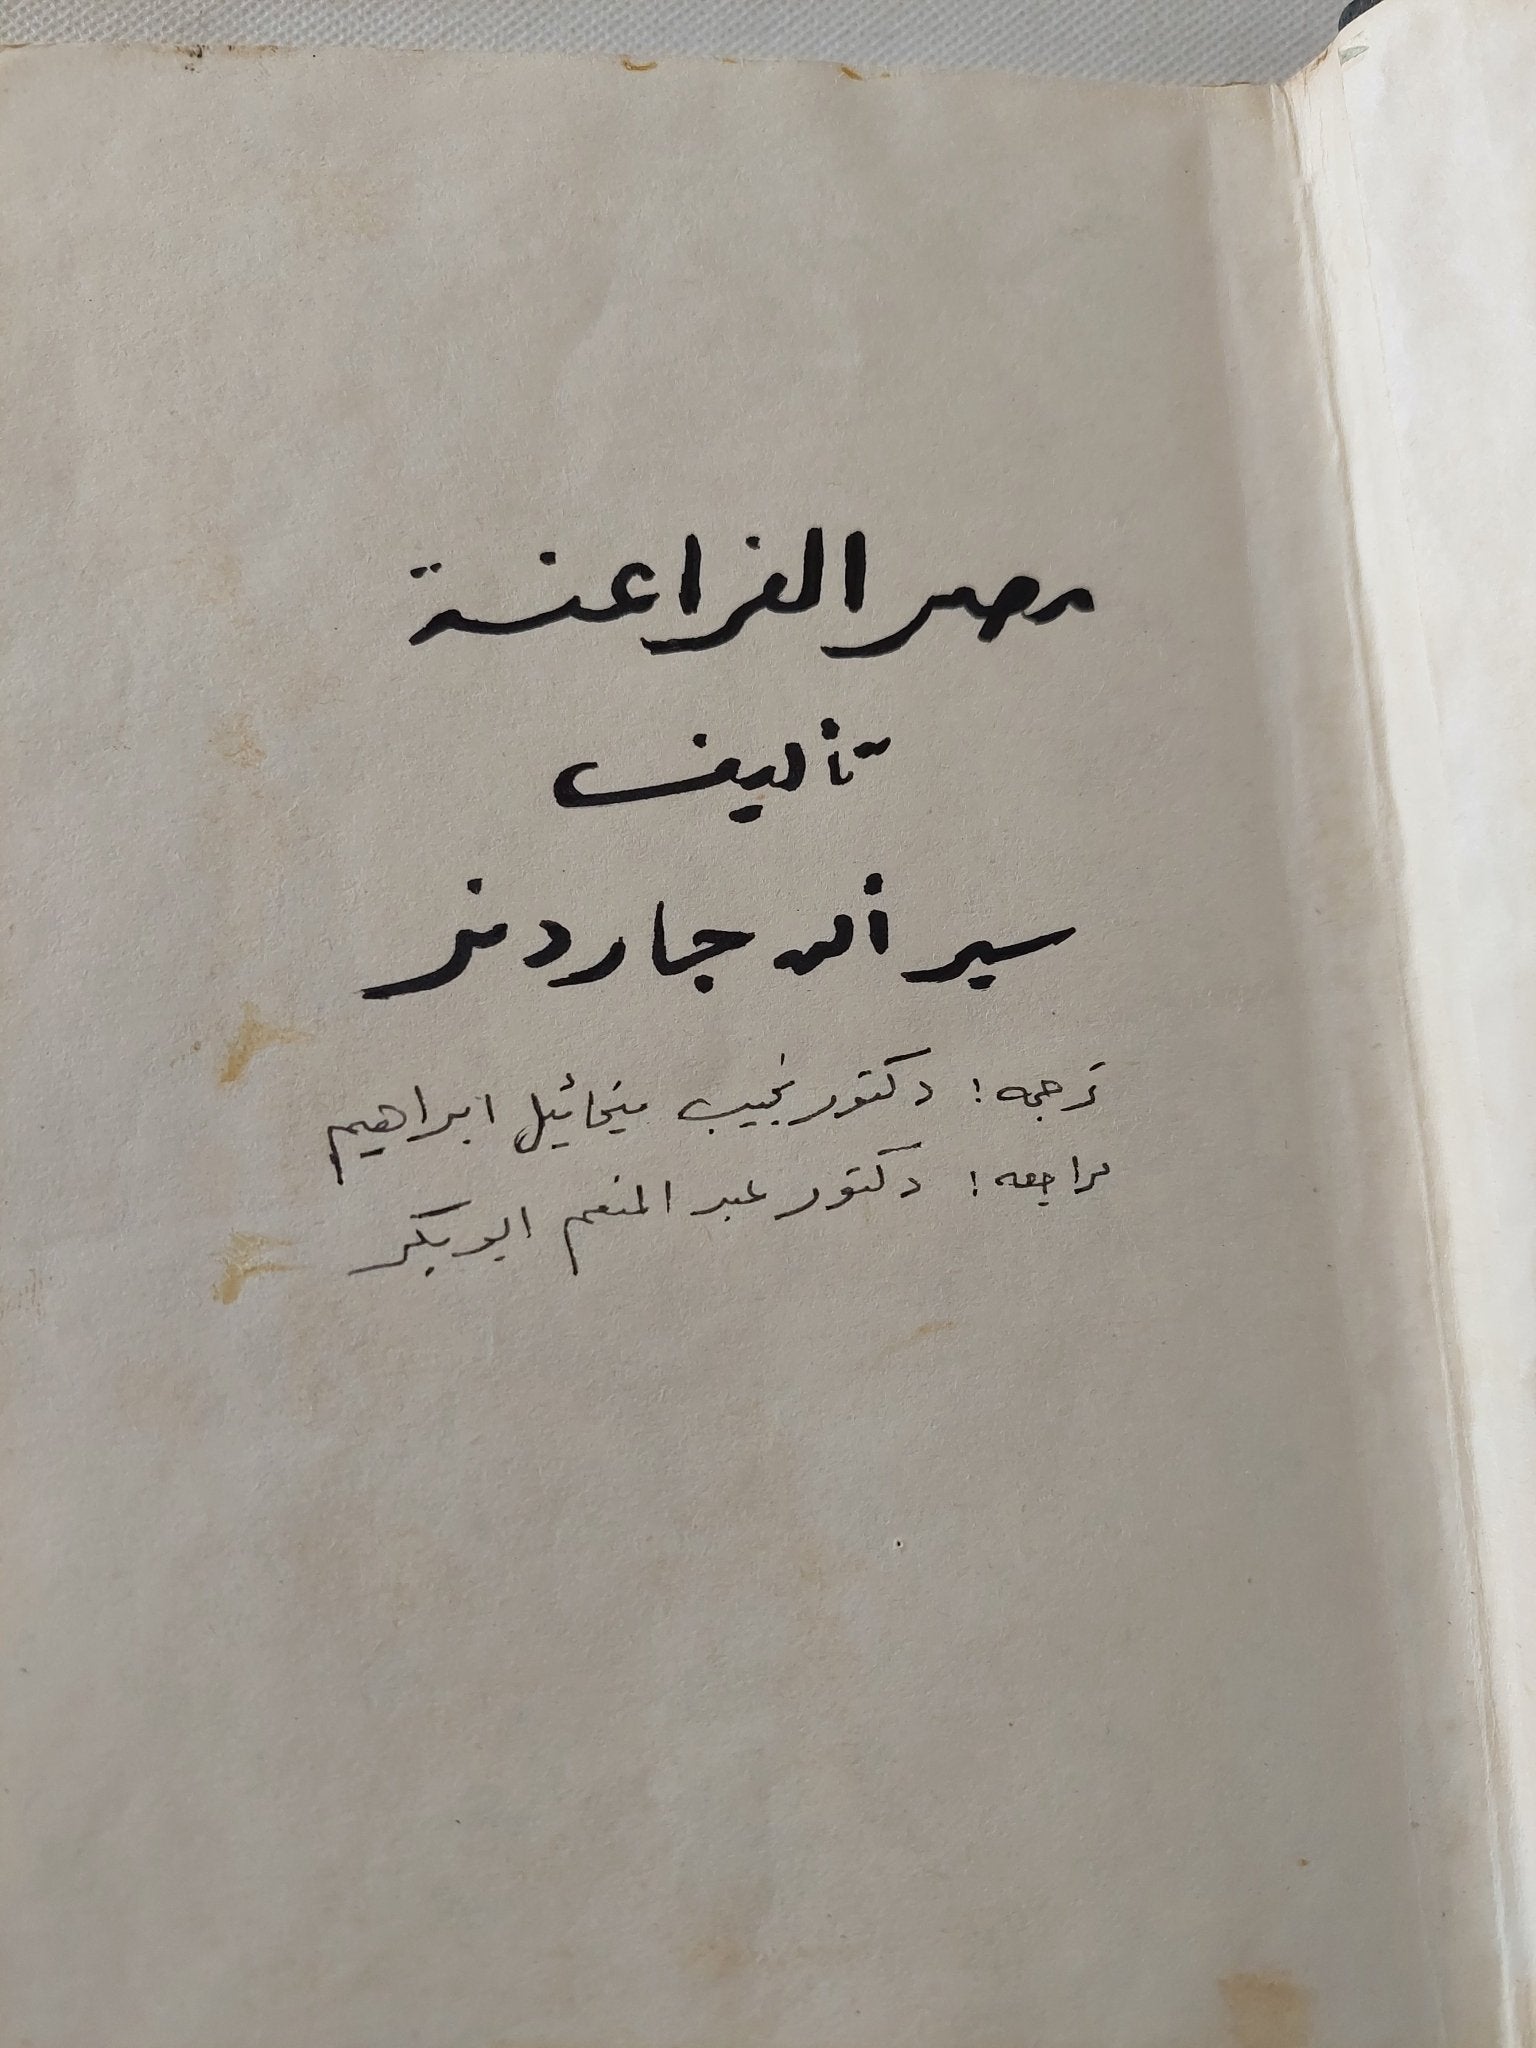 مصر الفراعنة
تأليف
سير ألن جاردنر
ترجمه : دكتور نجيب ميخائيل ابراهيم
مراجعه : دكتور عبد المنعم ابو بكر